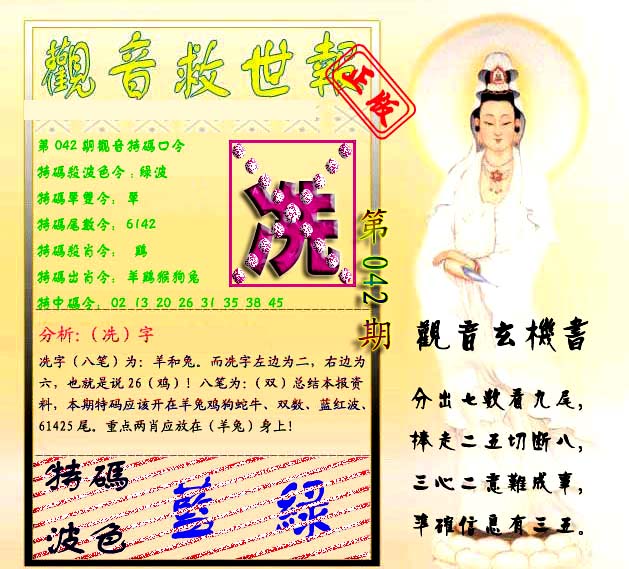 觀音救世報
正版
第042期觀音特碼口令
特碼殺波色令:綠波
特碼單雙令: 單
特碼尾數令: 6142
特碼殺肖令: 鷄
特碼出肖令: 羊鷄猴狗兔
特中碼令: 02 13 20 26 31 35 38 45
冼
第042期
分析:(冼)字
冼字(八笔)为:羊和兔。而冼字左边为二,右边为
六,也就是说26(鸡)!八笔为:(双)总结本报资
料,本期特码应该开在羊兔鸡狗蛇牛、双数、蓝红波、
61425尾。重点两肖应放在(羊兔)身上!
特碼
波色
藍 綠
觀音玄機書
分出七數看九尾,
棒走二五切断八,
三心二意難成事,
準確信息有三五。